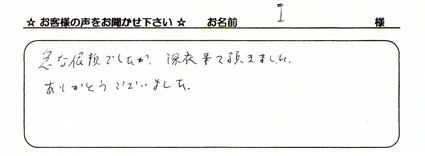 ☆ お客様の声をお聞かせ下さい ☆ お名前 I 様
急な依頼でしたが、深夜来て頂きました。
ありがとうございました。